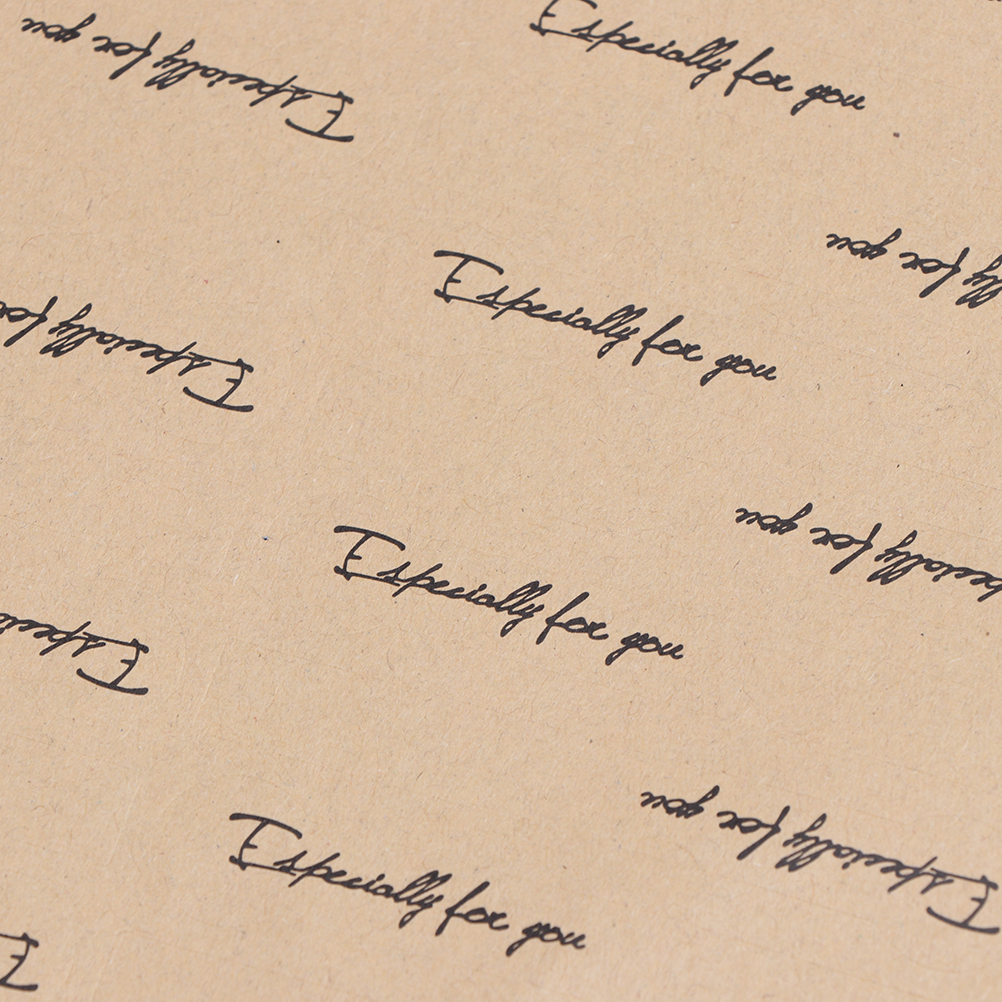 Especially for you
Especially for you
ly for you
Especially for you
Especially for
Especially for you
pecially for you
Especi
Especially for you
Especially for you
E